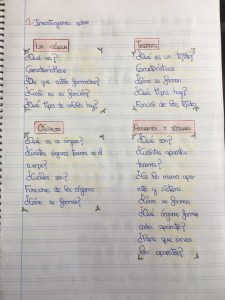 1. Investigamos sobre
LA CÉLULA
¿Qué es?
Características
¿De qué está formada?
¿Cuál es su función?
¿Qué tipos de células hay?
TEJIDOS
¿Qué es un tejido?
Características
¿Cómo se forman?
¿Qué tipos hay?
Función de los tejidos
ÓRGANOS
¿Qué es un órgano?
¿Cuántos órganos tiene el
cuerpo?
¿Cuáles son?
Funciones de los órganos
¿Cómo se forman?
APARATOS Y SISTEMAS
¿Qué son?
¿Cuántos aparatos
tenemos?
¿Es lo mismo apa-
rato y sistema?
¿Cómo se forman?
¿Qué órganos forman
cada aparato?
¿Para qué sirven
los aparatos?